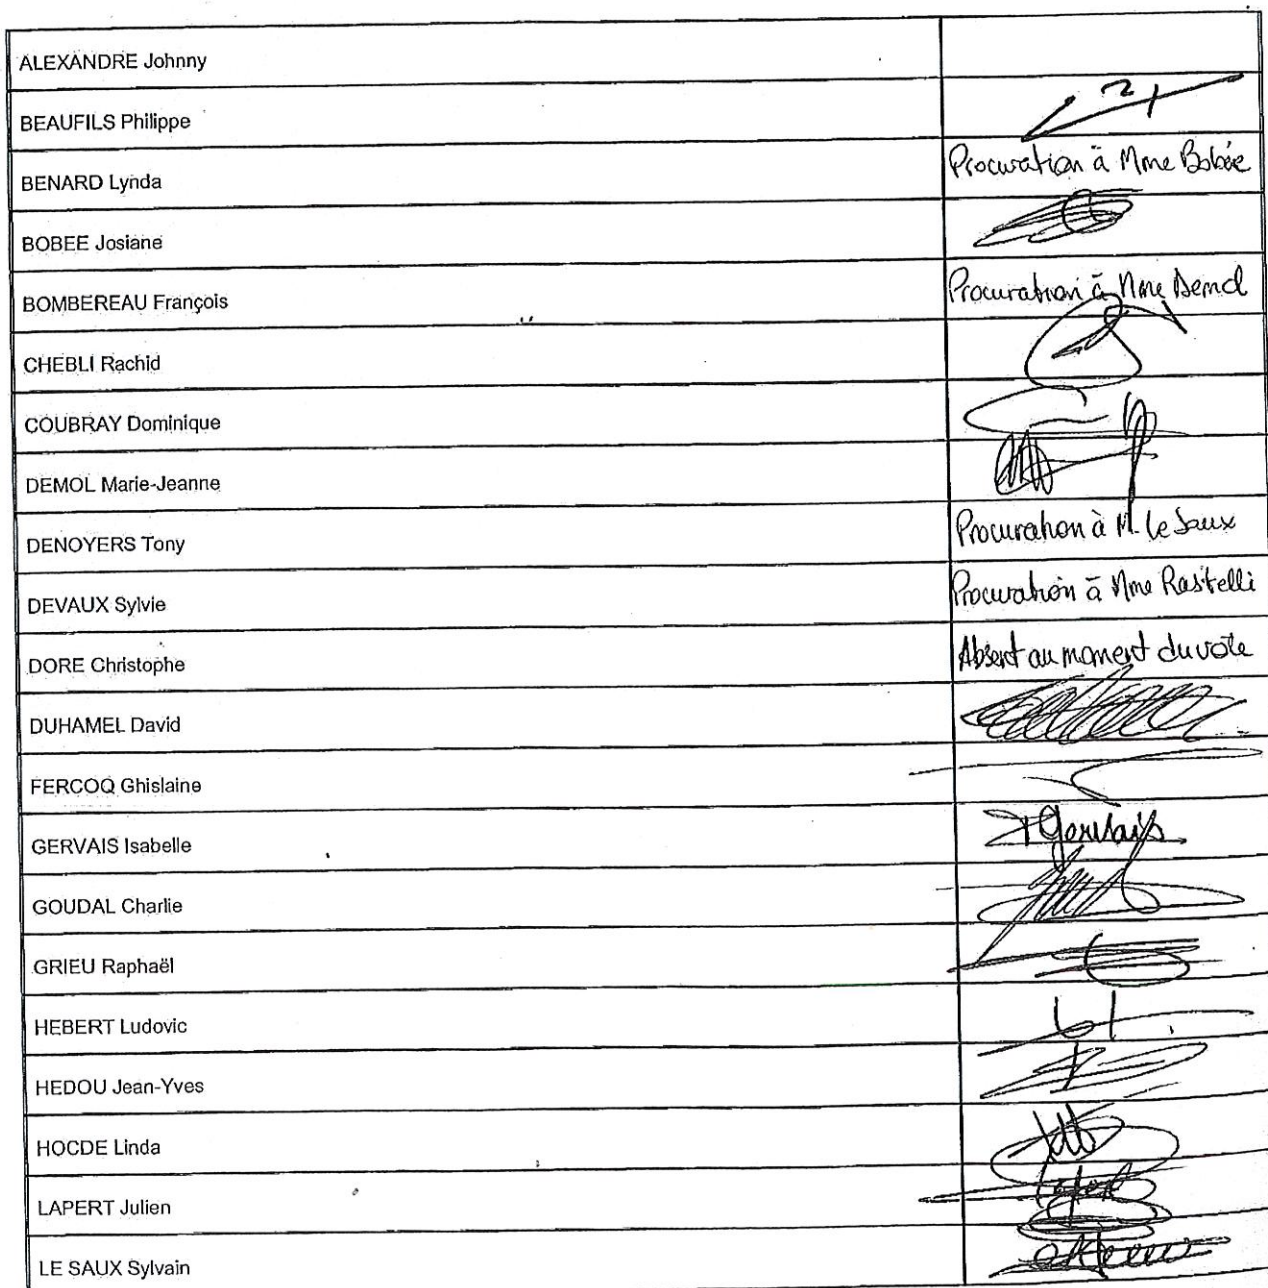 ALEXANDRE Johnny
BEAUFILS Philippe
BENARD Lynda Procuration à Mme Bobée
BOBEE Josiane
BOMBEREAU François Procuration à Mme Demol
CHEBLI Rachid
COUBRAY Dominique
DEMOL Marie-Jeanne
DENOYERS Tony Procuration à M. Le Saux
DEVAUX Sylvie Procuration à Mme Rastelli
DORE Christophe Absent au moment du vote
DUHAMEL David
FERCOQ Ghislaine
GERVAIS Isabelle Gervais
GOUDAL Charlie
GRIEU Raphaël
HEBERT Ludovic
HEDOU Jean-Yves
HOCDE Linda
LAPERT Julien
LE SAUX Sylvain